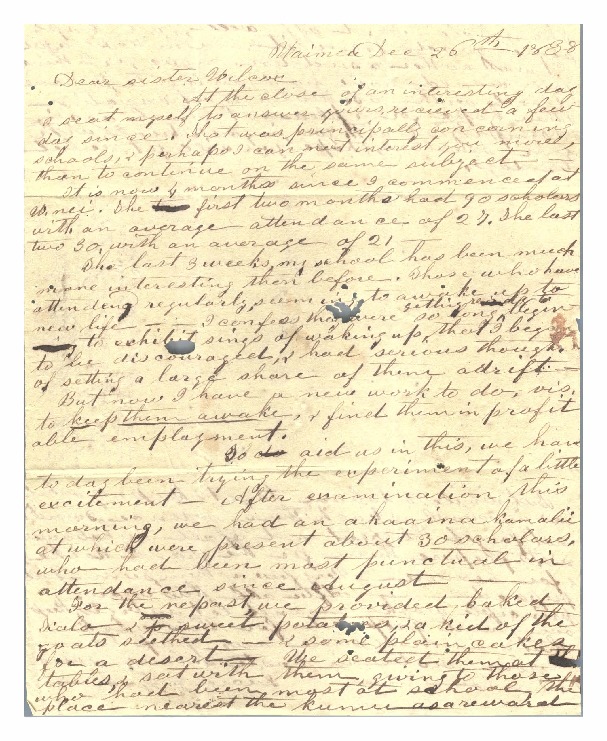 Waimea Dec 26th 1838
Dear sister Wilcox
At the close of an interesting day
I seat myself to answer yours, recieved a few
day since. That was principally concerning
schools, & perhaps I can not interest you more,
than to continue on the same subject. —
It is now 4 months since I commenced at
The first two months had 90 scholars
with an average attendance of 27. The last
two 30, with an average of 21
The last 3 weeks, my school has been much
more interesting than before. Those who have
attended regularly, seem to awake up to
new life — I confess were so long
to exhibit sings of waking up, that I began
to be discouraged, & had serious though
of setting a large share of them adrift. —
But now I have a new work to do, vis,
to keep them awake, & find them in profit
able employment.
To aid us in this, we have
to day been trying the experiment of a little
excitement — After examination this
morning, we had an ahaaina kamalii
at which were present about 30 scholars,
who had been most punctual in
attendance since August —
For the repast, we provided baked
kalo & sweet potatoes, a kid of the
goats seethed — & some plain cakes
for a desert — We seated them at
tables, & sat with them, giving to those,
who had been most at school, the
place nearest the kumu as a reward